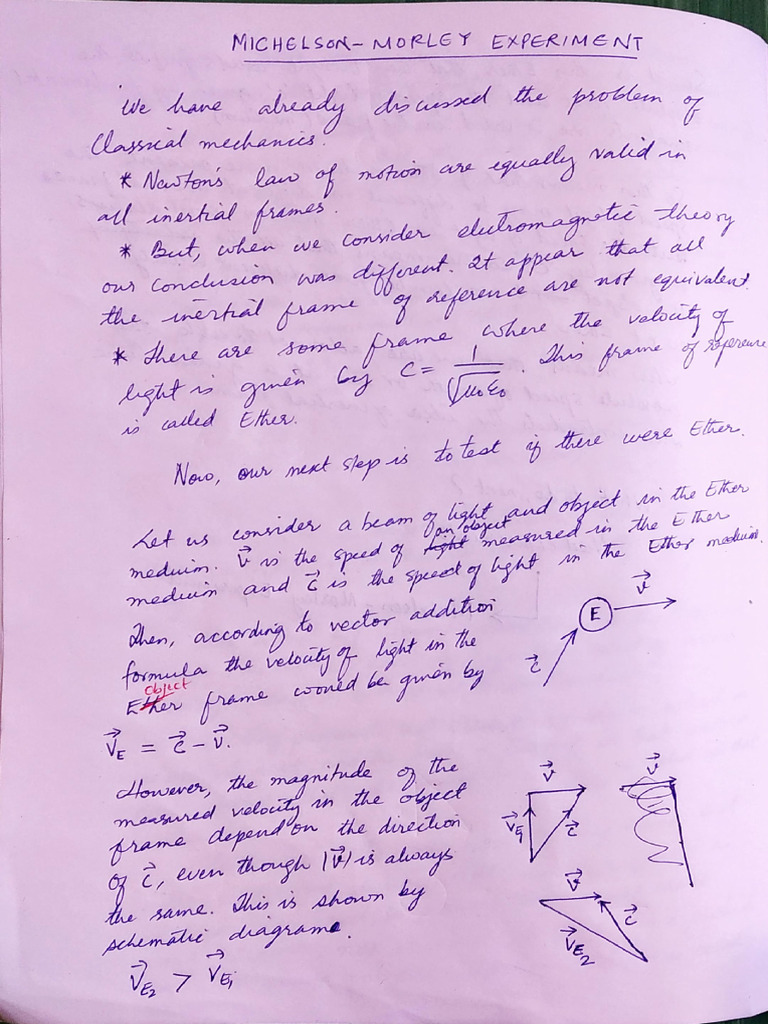 MICHELSON-MORLEY EXPERIMENT
We have already discussed the problem of
Classical mechanics.
* Newton's law of motion are equally valid in
all inertial frames.
* But, when we consider electromagnetic theory
our conclusion was different. It appear that all
the inertial frame of reference are not equivalent.
* There are some frame where the velocity of
light is given by C = 1/√μ₀ε₀. This frame of reference
is called Ether.
Now, our next step is to test if there were Ether.
Let us consider a beam of light and object in the Ether
medium. v⃗ is the speed of an object measured in the Ether
medium and c⃗ is the speed of light in the Ether medium.
Then, according to vector addition
formula the velocity of light in the
object frame would be given by
V⃗E = c⃗ - v⃗.
v⃗
E
c⃗
However, the magnitude of the
measured velocity in the object
frame depend on the direction
of c⃗, even though |v⃗| is always
the same. This is shown by
schematic diagrame.
V⃗E₂ > V⃗E₁
v⃗
V⃗E₁
c⃗
v⃗
v⃗
c⃗
V⃗E₂